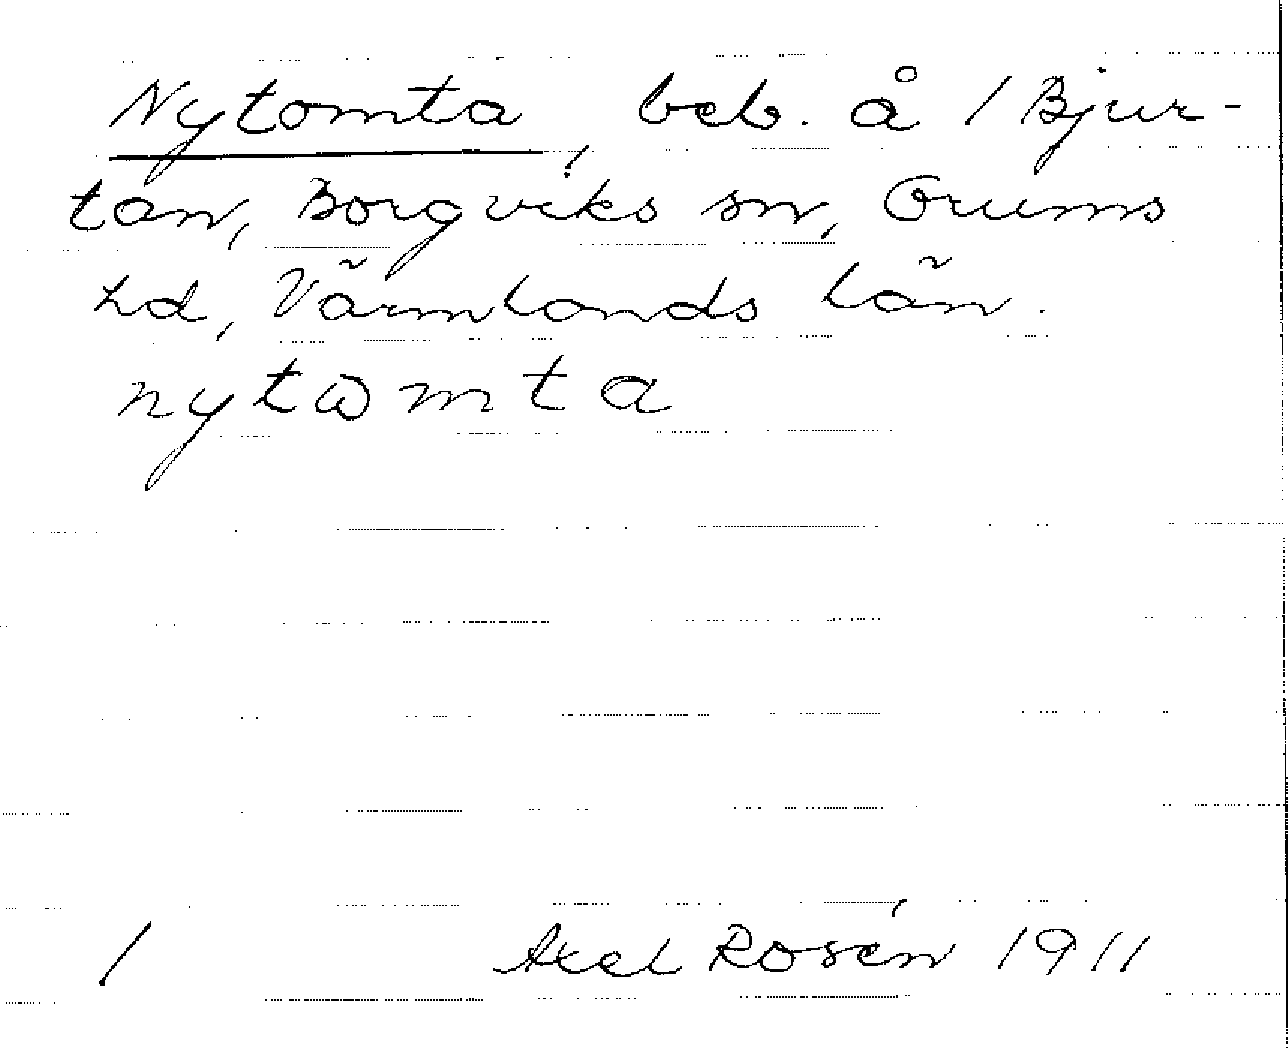 Nytomta, beb. å 1 Bjur-
tan, Borgviks sn, Grums
hd, Värmlands län.
nytωmta
1 Axel Rosén 1911